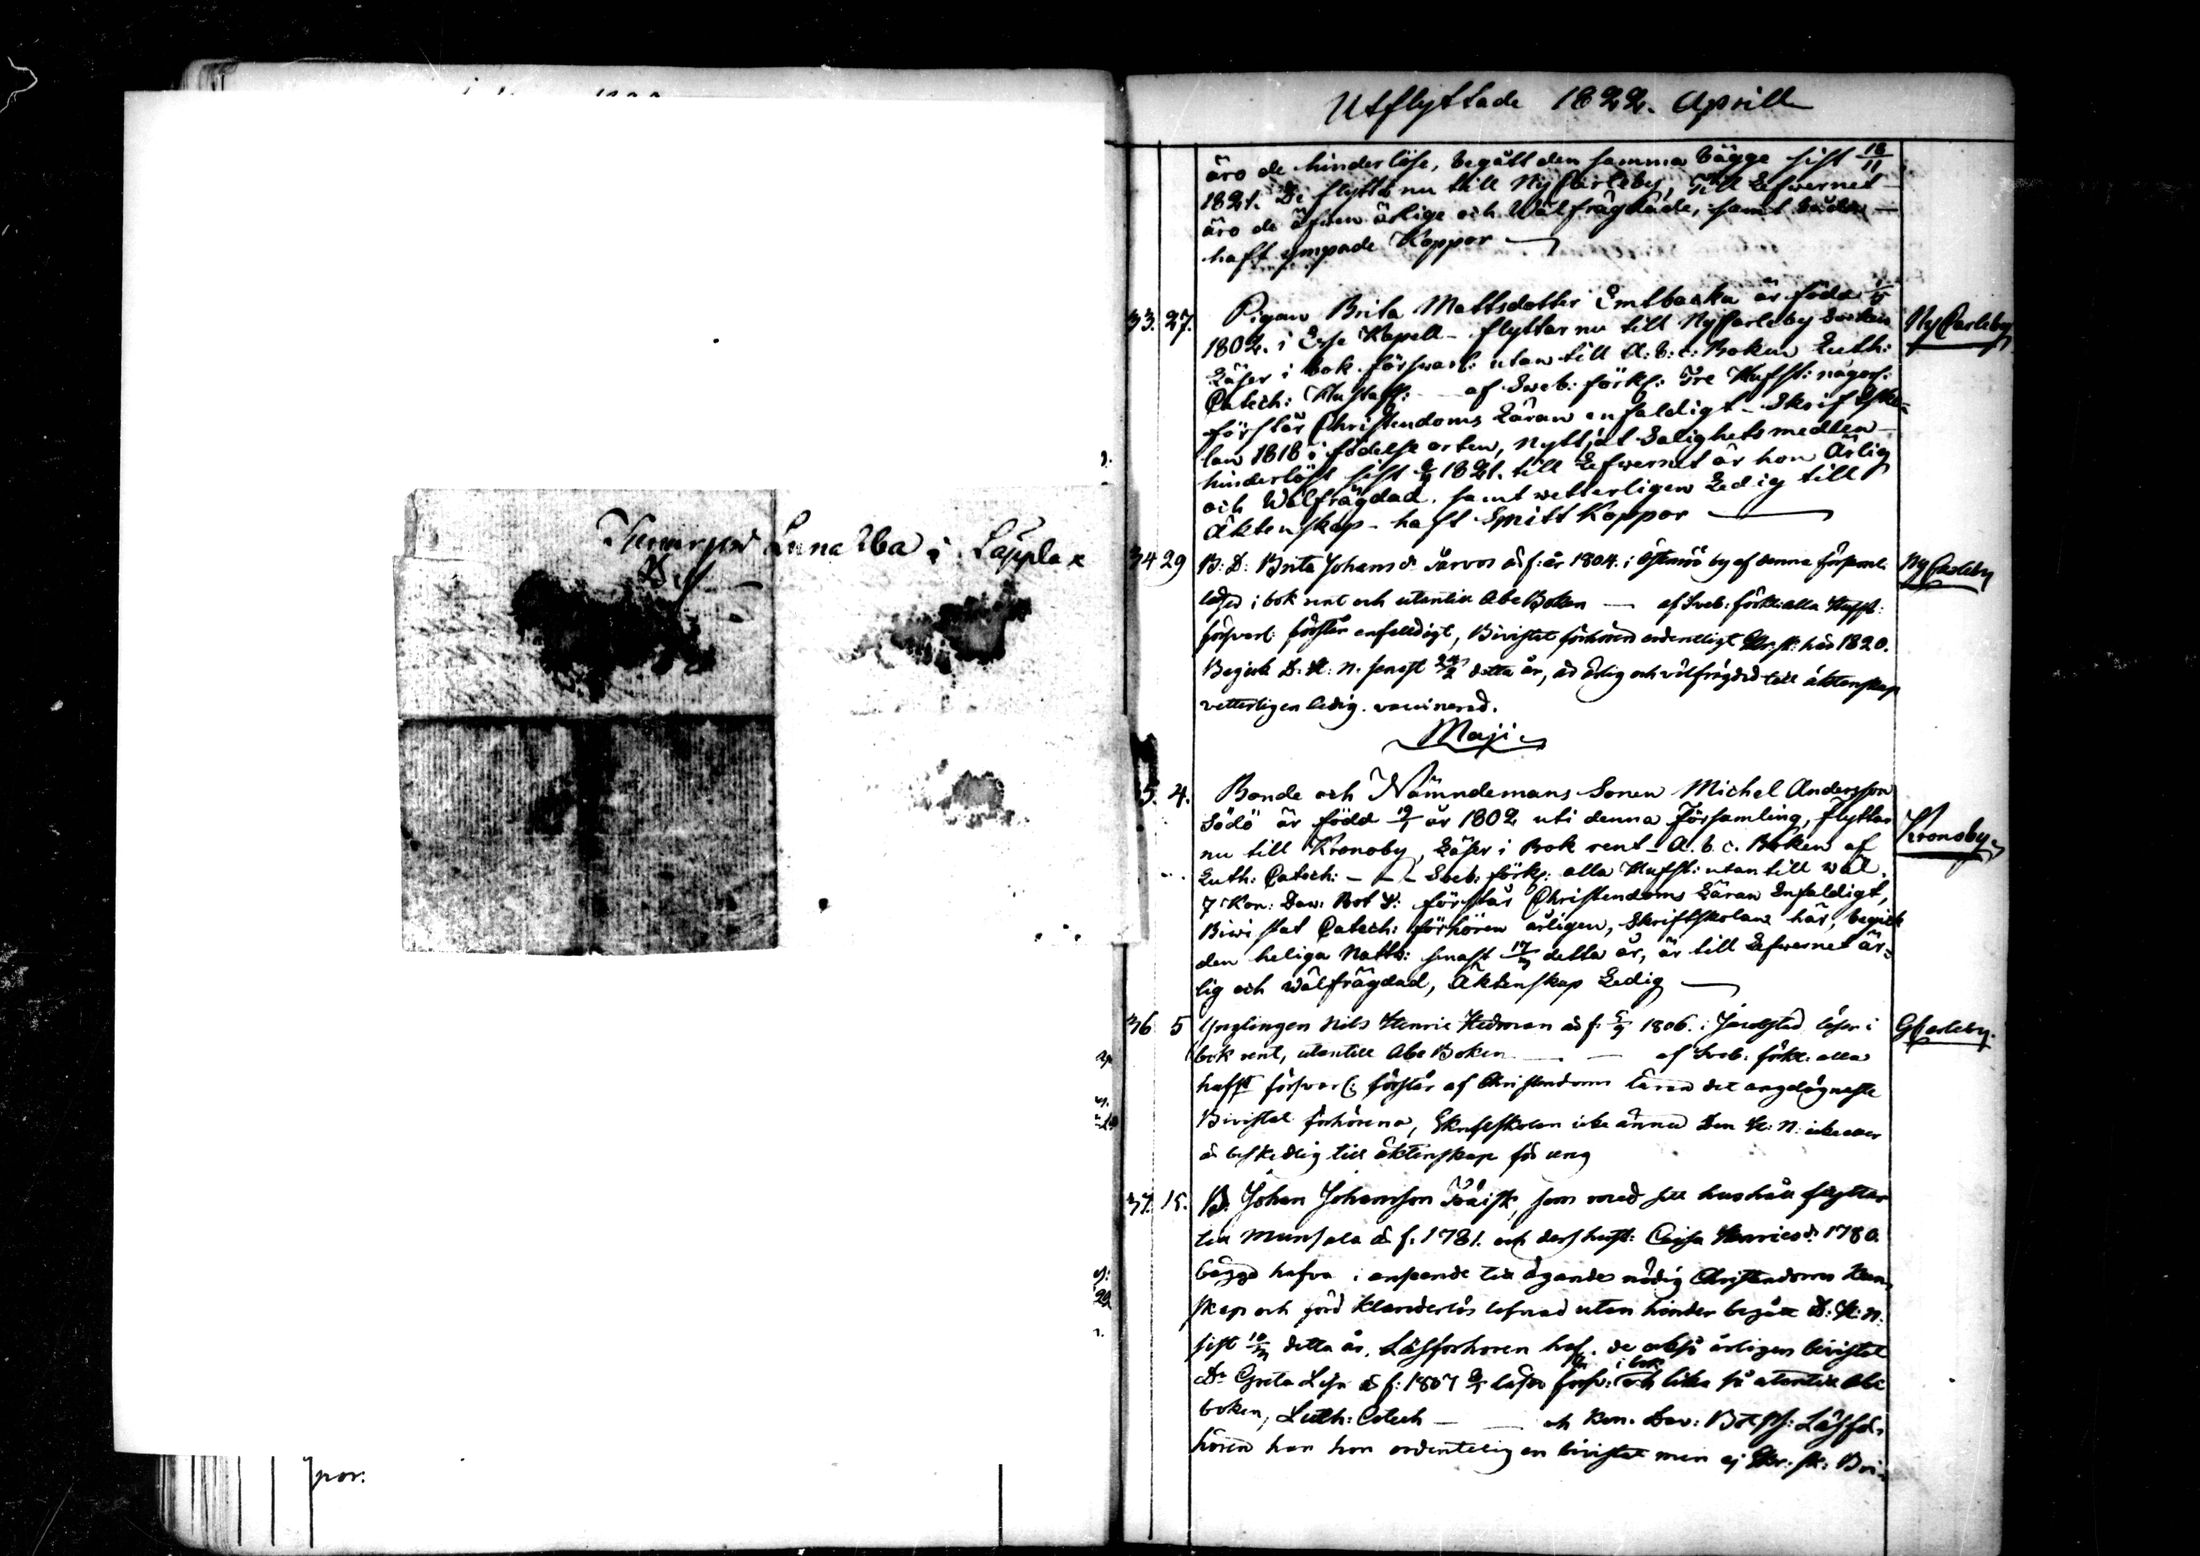 Lunabba i Lappla x
por:
Utflyttade 1822. Aprill
äro de hinderlöse, begått den samma bägge sist 18/11
1821. De flytta nu till NyCarleby, Till Lefwernet
äro de äfwen ärlige och Wälfrägdade, samt både
haft ympade Koppor
33. 27. Pigan Brita Mattsdotter Emtbacka är född 1/5 NyCarleby
1802. i Esse Kapell – flyttar nu till NyCarleby Socken
Läser i bok förswarl: utan till A:b:c: Boken Luth:
Catech: Hustafl: af Sweb: förkl: Tre Hufst: någorl:
förstår Christendoms Läran enfaldigt – Skriftsko-
lan 1818 i födelse orten, nyttjat Salighets medlen
hinderlöst sist 1821. till Lefwernet är hon Ärlig
och Wälfrägdad, samt wetterligen Ledig till
Äktenskap – haft Smitt Koppor
34 29 B: D: Brita Johansd:r Särvos är f: år 1804. i by af denna församl. NyCarleby
läser i bok rent och utantill Abc Boken — af Sveb: förkl: alla Hufst:
försvarl: förstår enfaldigt, Bivistat förhören ordentligt Skr. sk: här 1820.
Begick D. H. N. senast detta år, är ärlig och välfrägdad till äktenskap
vetterligen ledig. vaccinerad.
Maji
5. 4. Bonde och Nämndemans Sonen Michel Andersson
Södö är född 19/1 år 1802 uti denna Församling, flyttar Kronoby
nu till Kronoby, Läser i Bok rent A.b.c. Boken af
Luth: Catech: – – – Sveb: förkl: alla Hufst: utan till wäl.
7 Kon: Daw: Bot Ps: förstår Christendoms Läran Enfaldigt,
Biwistat Catech: förhören årligen, Skriftskolan här, begick
den heliga Nattw: senast 17/3 detta år, är till Lefwernet är-
lig och wälfrägdad, Äktenskap Ledig
36 5 Ynglingen Nils Henric Hedman är f: 1806. i Jacobstad läser i GCarleby.
bok rent, utantill Abc Boken — — af Sveb: förkl: alla
hufst försvarl: förstår af Christendoms läran det angelägnaste
Bivistat förhören, Skriftskolan icke ännu Den H: N: icke
är beskedlig till äktenskap för ung
37. 15. B. Johan Johansson som med sitt hushåll flyttar
till Munsala är f. 1781. och dess hust: Cajsa Henricsd:r 1780.
bägge hafva i anseende till ägande nödig Christendoms Kun-
skap och förd klanderlös lefnad utan hinder begått D: H: N:
sist 10/3 detta år. Läsförhören haf. de också årligen bivistat
Dr Greta Lisa är f: 1807 läser försv: i bok och lika så utantill Abc
boken, Luth: Catech — — och Kon. Dav: Bot Ps: Läsför-
hören har hon ordenteligen bivistat men ej Skr. sk: Bri-